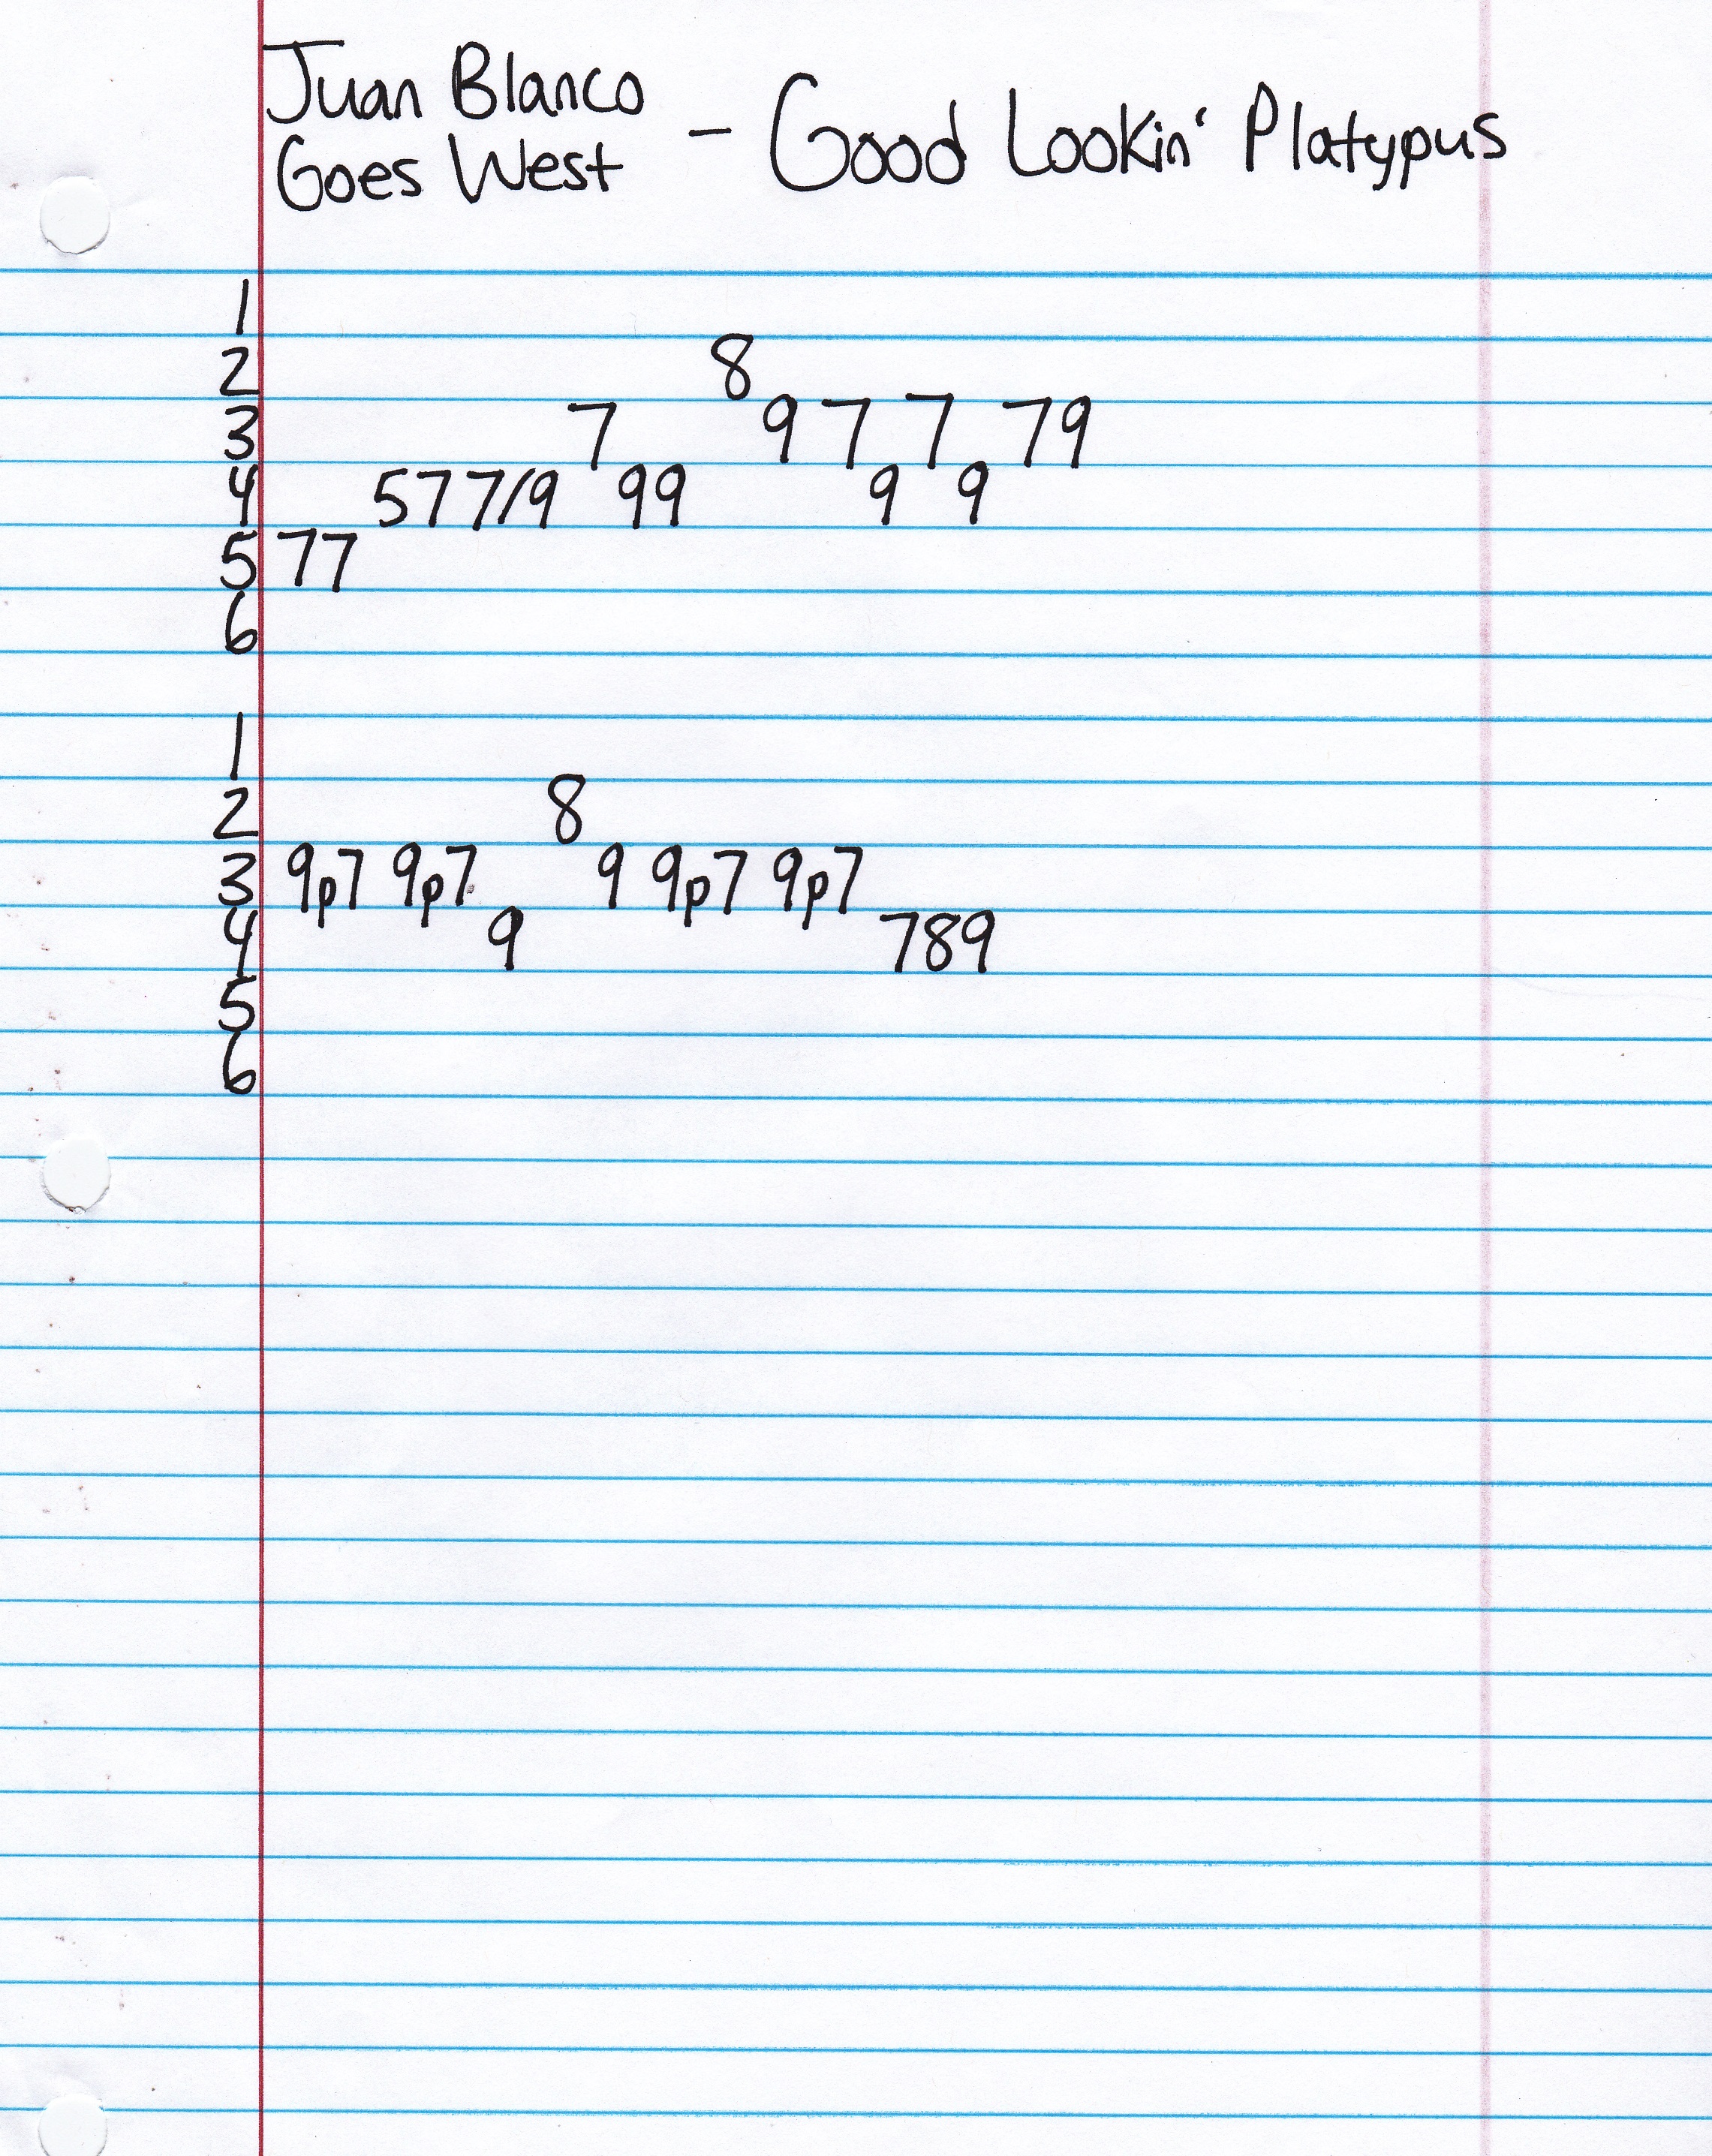 Juan Blanco
Goes West - Good Lookin' Platypus
1
2 8
3 7 9 7 7 79
4 577/9 99 9 9
5 77
6
1
2 8
3 9p7 9p7 9 9p7 9p7
4 9 789
5
6